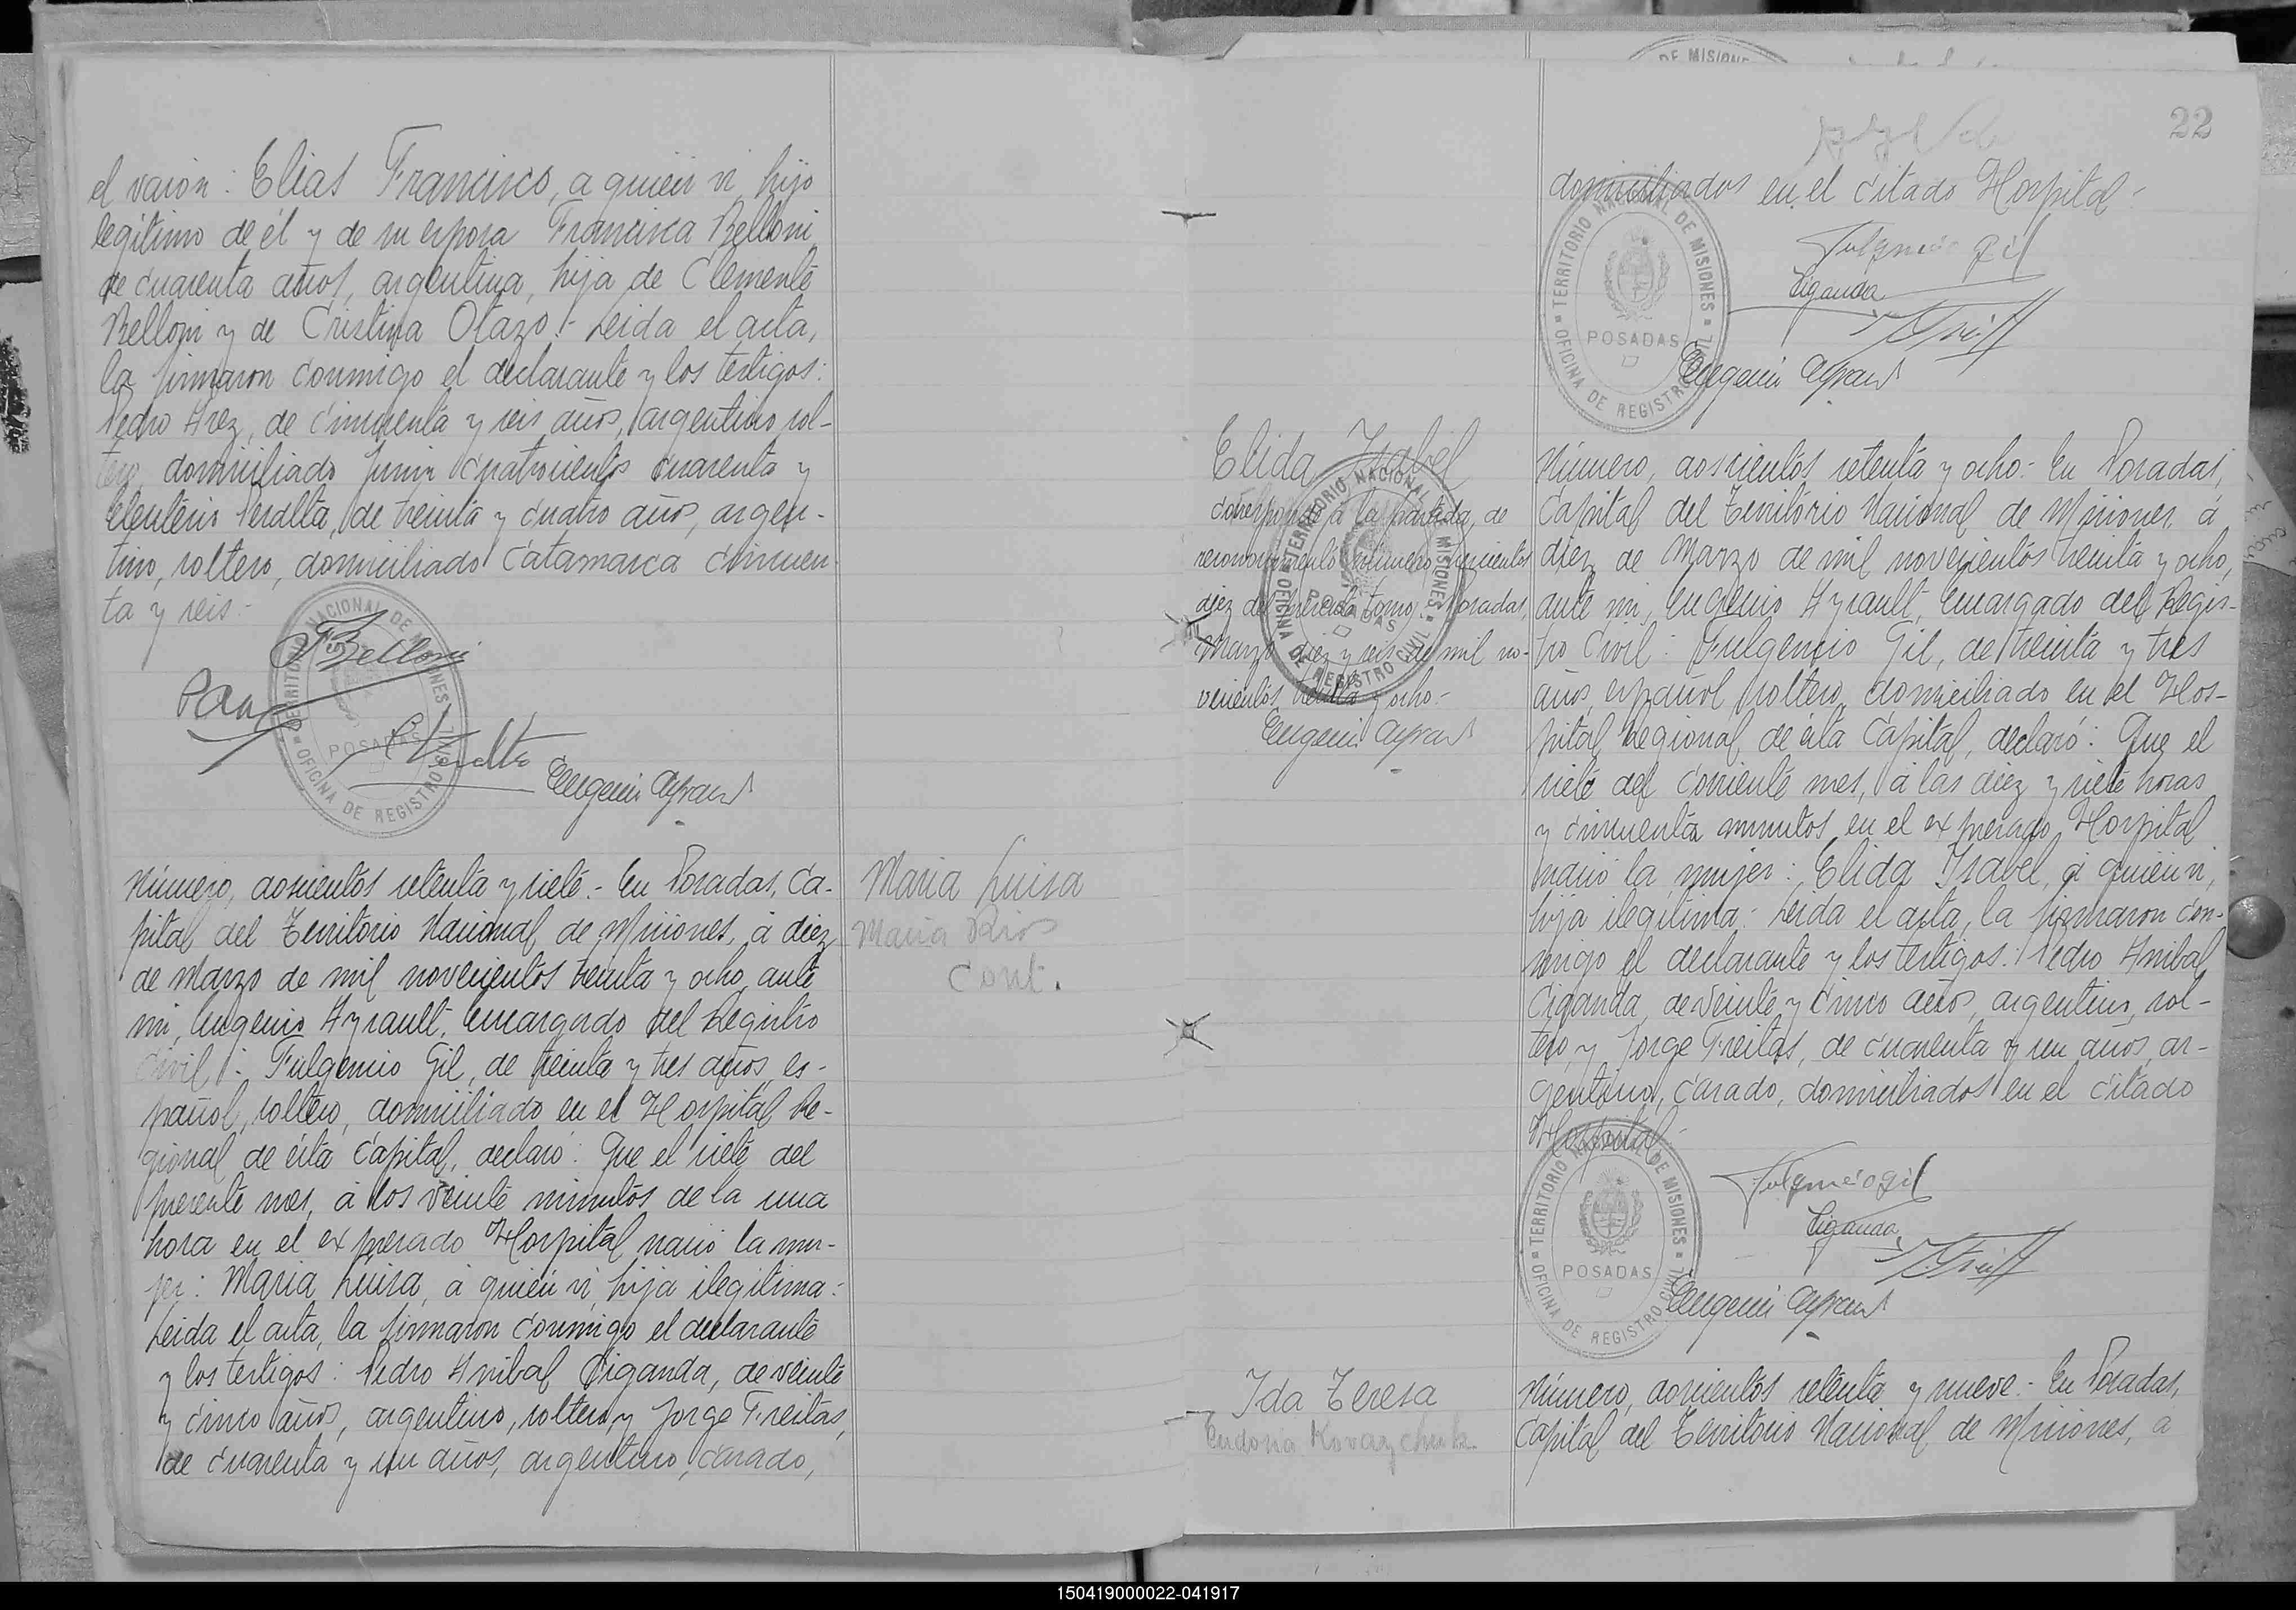 el varon: Elias Francisco, a quien vi, hijo
legítimo de él y de su esposa Francisca Belloni
de cuarenta años, argentina, hija de Clemente
Belloni y de Cristina Otazo.- Leida el acta,
la firmaron conmigo el declarante y los testigos:
Pedro Arez, de cincuenta y seis años, argentino, sol-
tero, domiciliado Junin cuatrocientos cuarenta y
Eleuterio Peralta, de treinta y cuatro años, argen-
tino, soltero, domiciliado Catamarca cincuen-
ta y seis.-
FBelloni
EPeralta
Eugenio Ayrault
TERRITORIO NACIONAL DE MISIONES
POSADAS
OFICINA DE REGISTRO CIVIL
Número, doscientos setenta y siete.- En Posadas, Ca-
pital del Territorio Nacional de Misiones, á diez
de Marzo de mil novecientos treinta y ocho, ante
mi, Eugenio Ayrault, Encargado del Registro
Civil: Fulgencio Gil, de treinta y tres años, es-
pañol, soltero, domiciliado en el Hospital Re-
gional de ésta Capital, declaró: Que el siete del
presente mes, á los veinte minutos de la una
hora en el expresado Hospital nació la mu-
jer: Maria Luisa, á quien vi, hija ilegitima:
Leida el acta, la firmaron conmigo el declarante
y los testigos: Pedro Anibal Ciganda, de veinte
y cinco años, argentino, soltero, y Jorge Freitas,
de cuarenta y un años, argentino, casado,
Maria Luisa
Maria Rios
Cont.
22
DE MISIONE
domiciliados en el citado Hospital-
Fulgencio Gil
Ciganda
JFreitt
Eugenio Ayrault
TERRITORIO NACIONAL DE MISIONES
POSADAS
OFICINA DE REGISTRO CIVIL
Elida Isabel
corresponde á la partida de
reconocimiento número quinientos
diez del presente tomo. Posadas,
Marzo diez y seis de mil no-
vecientos treinta y ocho-
Eugenio Ayrault
TERRITORIO NACIONAL DE MISIONES
POSADAS
OFICINA DE REGISTRO CIVIL
Número, doscientos setenta y ocho.- En Posadas,
Capital del Territorio Nacional de Misiones, á
diez de Marzo de mil novecientos treinta y ocho,
ante mi, Eugenio Ayrault, Encargado del Regis-
tro Civil: Fulgencio Gil, de treinta y tres
años, español, soltero, domiciliado en el Hos-
pital Regional de ésta Capital, declaró: Que el
siete del corriente mes, á las diez y siete horas
y cincuenta minutos, en el expresado Hospital
nació la mujer: Elida Isabel, á quien vi,
hija ilegítima.- Leida el acta, la firmaron con-
migo el declarante y los testigos: Pedro Anibal
Ciganda, de veinte y cinco años, argentino, sol-
tero, y Jorge Freitas, de cuarenta y un años, ar-
gentino, casado, domiciliados en el citado
Hospital-
Fulgencio Gil
Ciganda
JFreitt
Eugenio Ayrault
TERRITORIO NACIONAL DE MISIONES
POSADAS
OFICINA DE REGISTRO CIVIL
Ida Teresa
Eudosia Kovazchuk
Número, doscientos setenta y nueve.- En Posadas,
Capital del Territorio Nacional de Misiones, á
150419000022-041917